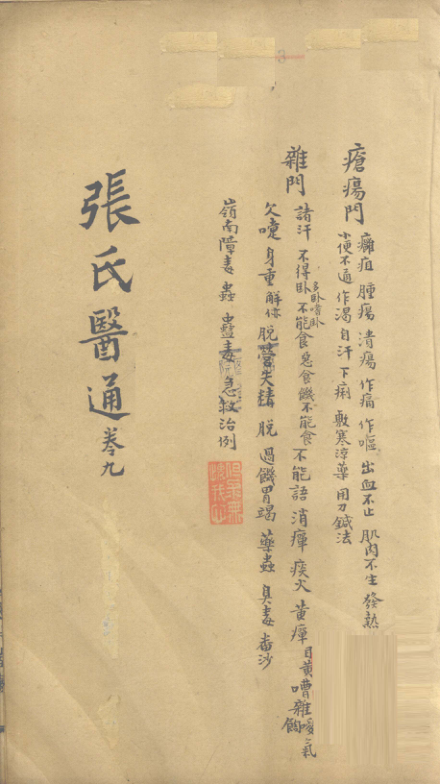 瘡瘍門 癰疽 腫瘍 潰瘍 作痛 作嘔 出血不止 肌肉不生 發熱
小便不通 作渴 自汗 下痢 敷寒涼藥 用刀鍼法
雜門 諸汗 不得卧 多卧嗜卧 不能食 惡食 饑不能食 不能語 消癉 痰火 黃癉 目黃 嘈雜 噯氣
欠嚏 身重 解㑊 脫營失精 脫 過饑胃竭 藥蟲 臭毒 番沙
嶺南障毒 蟲 蠱毒 急救治例
張氏醫通 卷九